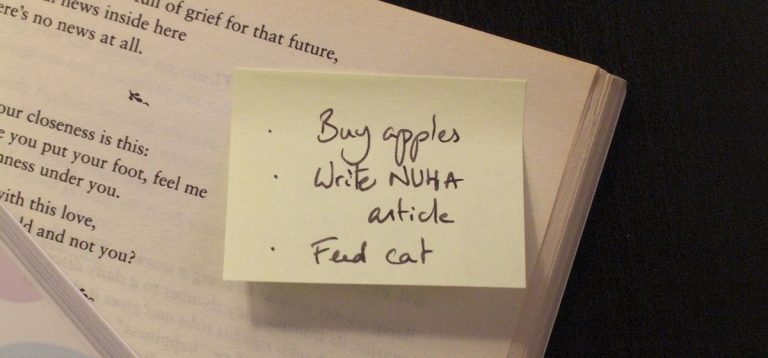 of grief for that future,
news inside here
there's no news at all.
our closeness is this:
you put your foot, feel me
under you.
with this love,
and not you?
· Buy apples
· Write NUHA
article
· Feed cat